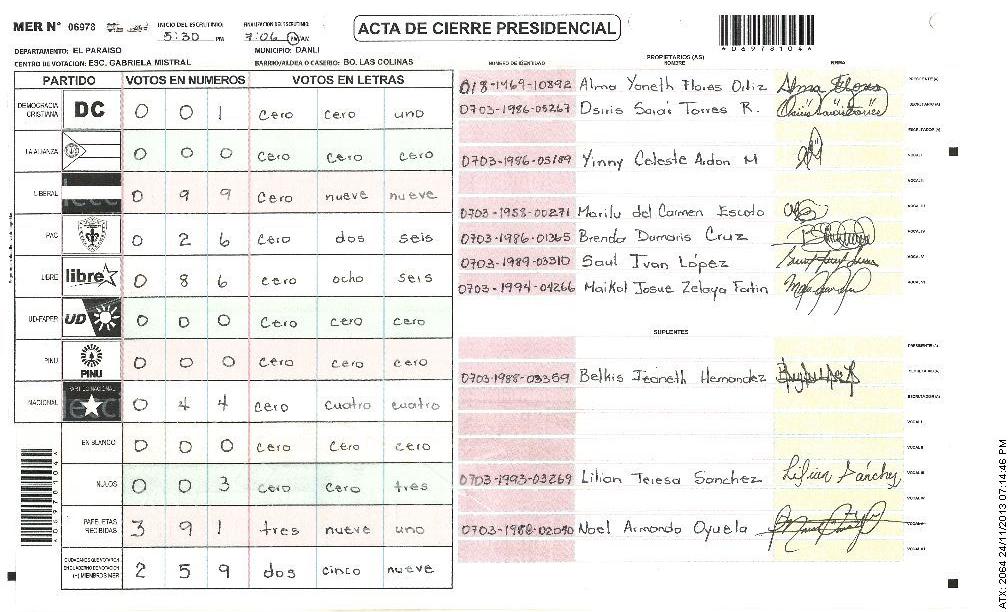 MER N° 06978
INICIO DEL ESCRUTINIO:
5:30 PM
FINALIZACION DEL ESCRUTINIO:
7:06 PM/AM
ACTA DE CIERRE PRESIDENCIAL
DEPARTAMENTO: EL PARAISO
MUNICIPIO: DANLI
CENTRO DE VOTACION: ESC. GABRIELA MISTRAL
BARRIO/ALDEA O CASERIO: BO. LAS COLINAS
PARTIDO VOTOS EN NUMEROS VOTOS EN LETRAS
DEMOCRACIA CRISTIANA DC 0 0 1 cero cero uno
LA ALIANZA 0 0 0 cero cero cero
LIBERAL 0 9 9 cero nueve nueve
PAC 0 2 6 cero dos seis
LIBRE libre 0 8 6 cero ocho seis
UD-FAPER UD 0 0 0 cero cero cero
PINU PINU 0 0 0 cero cero cero
NACIONAL PARTIDO NACIONAL 0 4 4 cero cuatro cuatro
EN BLANCO 0 0 0 cero cero cero
NULOS 0 0 3 cero cero tres
PAPELETAS RECIBIDAS 3 9 1 tres nueve uno
CIUDADANOS QUE VOTARON EN CUADERNO DE VOTACION (+) MIEMBROS MER 2 5 9 dos cinco nueve
NUMERO DE IDENTIDAD
PROPIETARIOS (AS)
NOMBRE
FIRMA
1469-10892 Alma Yaneth Flores Ortiz PRESIDENTE(A)
0703-1986-05267 Osiris Sarai Torres R. SECRETARIO(A)
ESCRUTADOR (A)
0703-1986-05189 Yinny Celeste Ardon M VOCAL I
VOCAL II
0703-1958-00271 Marilu del Carmen Escoto VOCAL III
0703-1986-01365 Brenda Damaris Cruz VOCAL IV
0703-1989-03310 Saul Ivan López VOCAL V
0703-1994-04266 Maikol Josue Zelaya Fortin VOCAL VI
SUPLENTES
PRESIDENTE(A)
0703-1988-03359 Belkis Jeaneth Hernandez
SECRETARIO(A)
VOCAL I
VOCAL II
0703-1993-03269 Lilian Teresa Sanchez Lilian Sánchez VOCAL III
VOCAL IV
0703-1988-02090 Noel Armando Oyuela VOCAL V
VOCAL VI
ATX: 2064 24/11/2013 07:14:46 PM